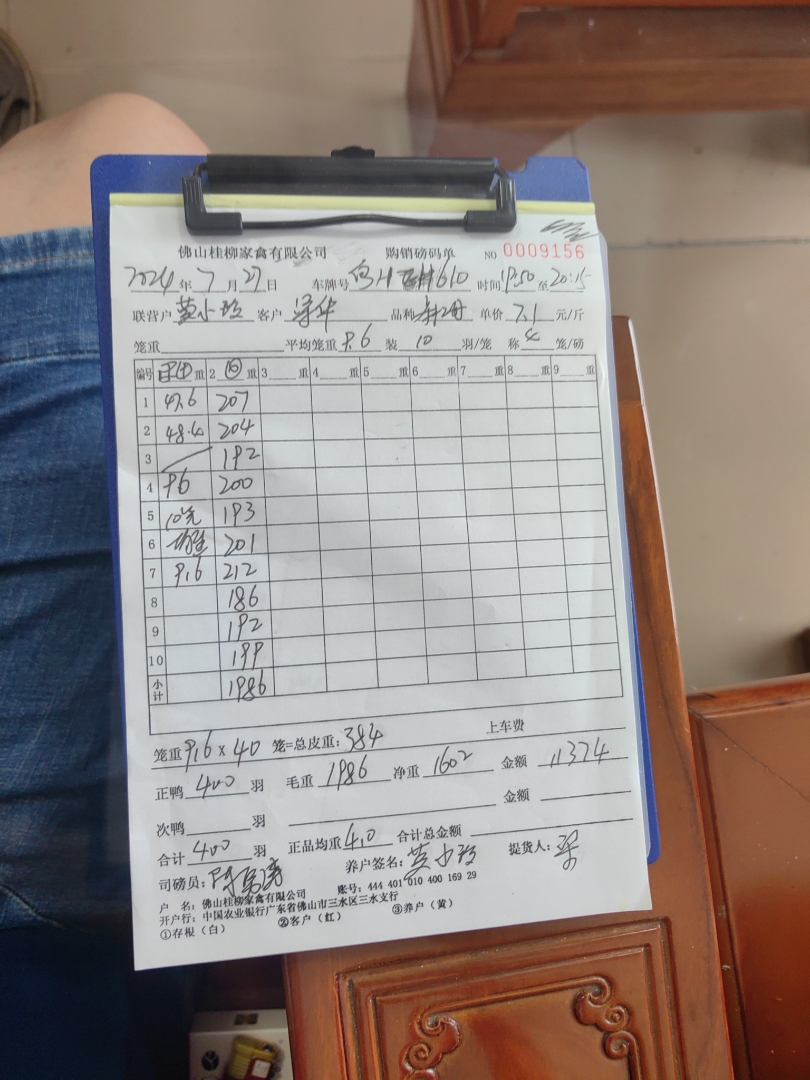 佛山桂柳家禽有限公司 购销磅码单 NO 0009156
2024年7月27日 车牌号 610 时间19:50至20:15
联营户 莫小玲 客户 梁华 品种 单价 7.1 元/斤
笼重 平均笼重 9.6 装 10 羽/笼 称 4 笼/磅
编号 重 2 回 重 3 重 4 重 5 重 6 重 7 重 8 重 9 重
1 47.6 207
2 48.4 204
3 192
4 96 200
5 10笼 193
6 201
7 9.6 212
8 186
9 192
10 199
小计 1986
笼重9.6×40 笼=总皮重:384 上车费
正鸭 400 羽 毛重 1986 净重 1602 金额 11374
次鸭 羽 金额
合计 400 羽 正品均重 4.0 合计总金额
司磅员: 养户签名:莫小玲 提货人:梁
户 名:佛山桂柳家禽有限公司 账号:444 401 010 400 169 29
开户行:中国农业银行广东省佛山市三水区三水支行
①存根(白) ②客户(红) ③养户(黄)